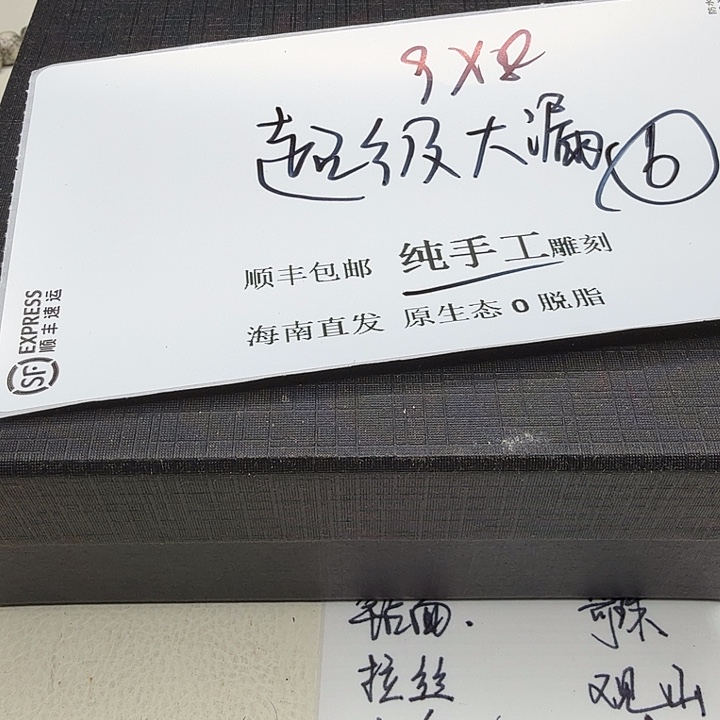 9X8
超级大漏 6
顺丰包邮 纯手工雕刻
海南直发 原生态0脱脂
SF EXPRESS
顺丰速运
拉丝 观山